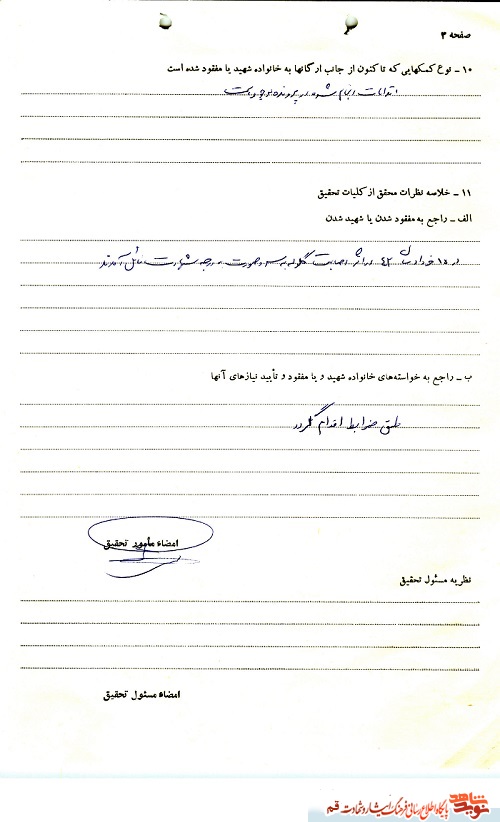 صفحه ۳
۱۰ ـ نوع کمکهایی که تا کنون از جانب ارگانها به خانواده شهید یا مفقود شده است
اقدامات انجام شده در پرونده موجود است
۱۱ ـ خلاصه نظرات محقق از کلیات تحقیق
الف ـ راجع به مفقود شدن یا شهید شدن
در ۱۵ خرداد سال ۴۲ در اثر اصابت گلوله به سر و صورت به درجه شهادت نائل آمدند
ب ـ راجع به خواسته‌های خانواده شهید و یا مفقود و تأیید نیازهای آنها
طبق ضوابط اقدام گردد
امضاء مأمور تحقیق
نظریه مسئول تحقیق
امضاء مسئول تحقیق
نوید شاهد
پایگاه اطلاع رسانی فرهنگ ایثار و شهادت قم